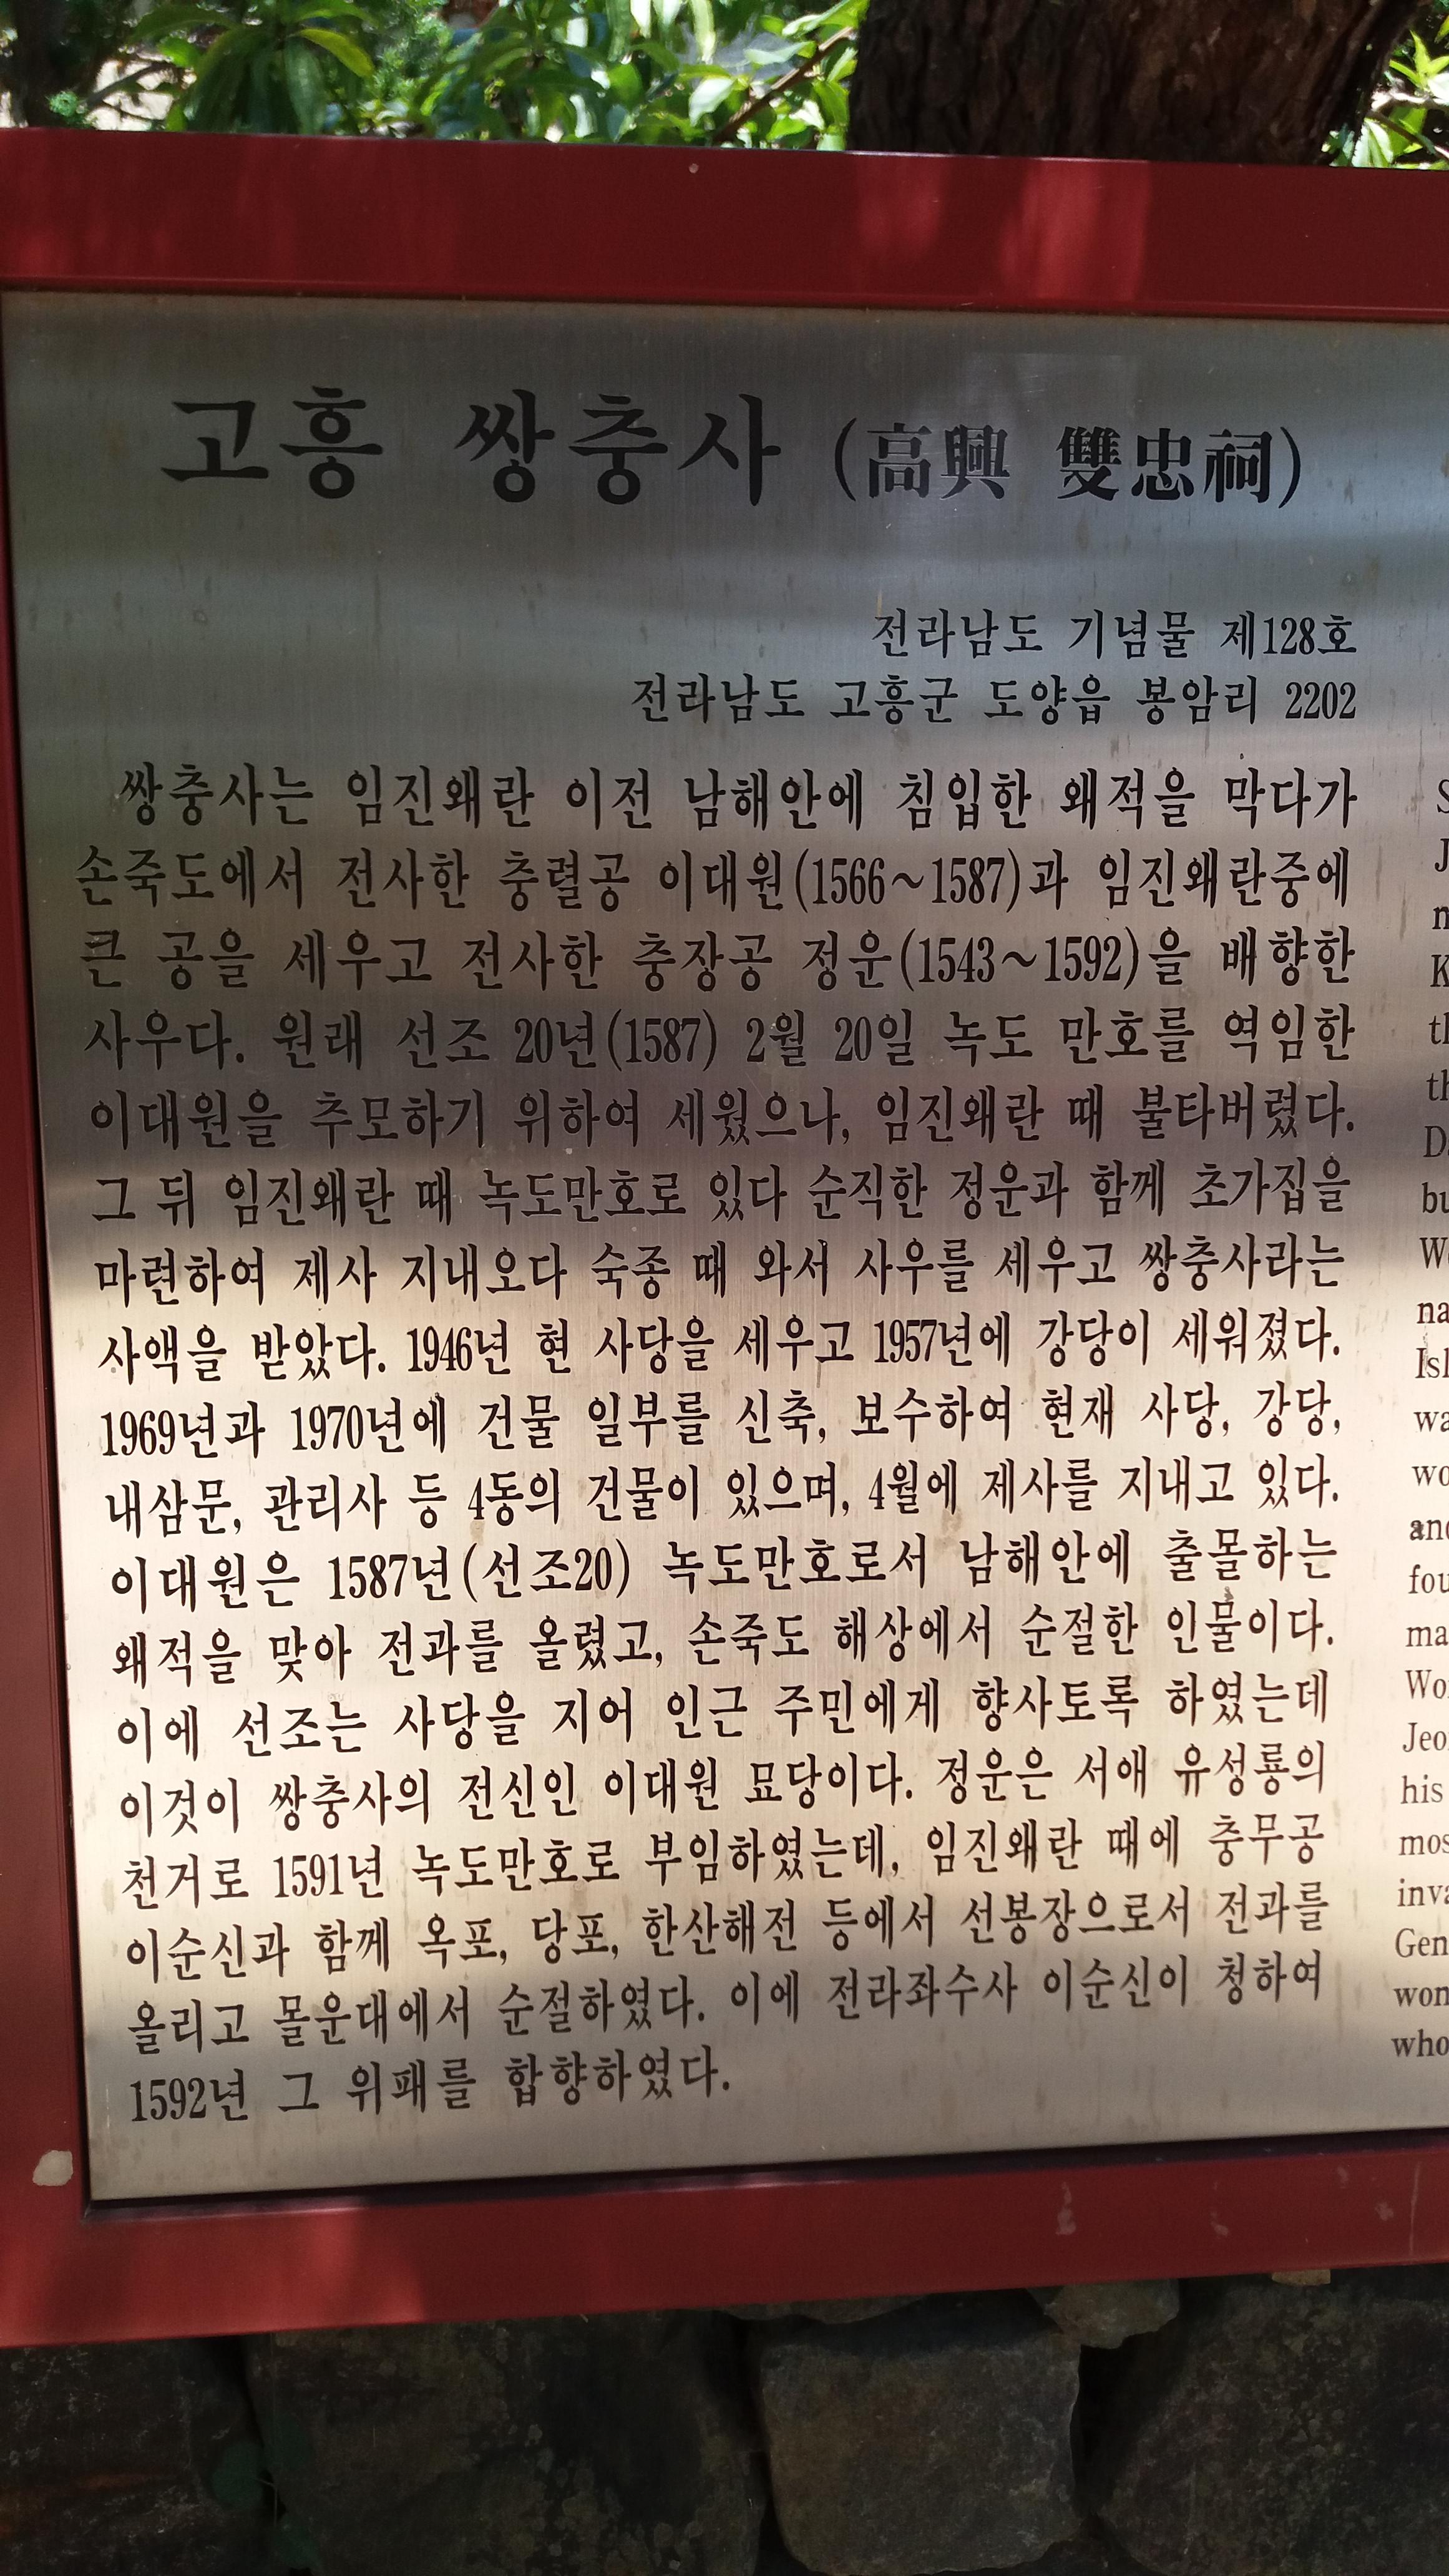 고흥 쌍충사 (高興 雙忠祠)
전라남도 기념물 제128호
전라남도 고흥군 도양읍 봉암리 2202
쌍충사는 임진왜란 이전 남해안에 침입한 왜적을 막다가
손죽도에서 전사한 충렬공 이대원(1566~1587)과 임진왜란중에
큰 공을 세우고 전사한 충장공 정운(1543~1592)을 배향한
사우다. 원래 선조 20년(1587) 2월 20일 녹도 만호를 역임한
이대원을 추모하기 위하여 세웠으나, 임진왜란 때 불타버렸다.
그 뒤 임진왜란 때 녹도만호로 있다 순직한 정운과 함께 초가집을
마련하여 제사 지내오다 숙종 때 와서 사우를 세우고 쌍충사라는
사액을 받았다. 1946년 현 사당을 세우고 1957년에 강당이 세워졌다.
1969년과 1970년에 건물 일부를 신축, 보수하여 현재 사당, 강당,
내삼문, 관리사 등 4동의 건물이 있으며, 4월에 제사를 지내고 있다.
이대원은 1587년(선조20) 녹도만호로서 남해안에 출몰하는
왜적을 맞아 전과를 올렸고, 손죽도 해상에서 순절한 인물이다.
이에 선조는 사당을 지어 인근 주민에게 향사토록 하였는데
이것이 쌍충사의 전신인 이대원 묘당이다. 정운은 서애 유성룡의
천거로 1591년 녹도만호로 부임하였는데, 임진왜란 때에 충무공
이순신과 함께 옥포, 당포, 한산해전 등에서 선봉장으로서 전과를
올리고 몰운대에서 순절하였다. 이에 전라좌수사 이순신이 청하여
1592년 그 위패를 합향하였다.